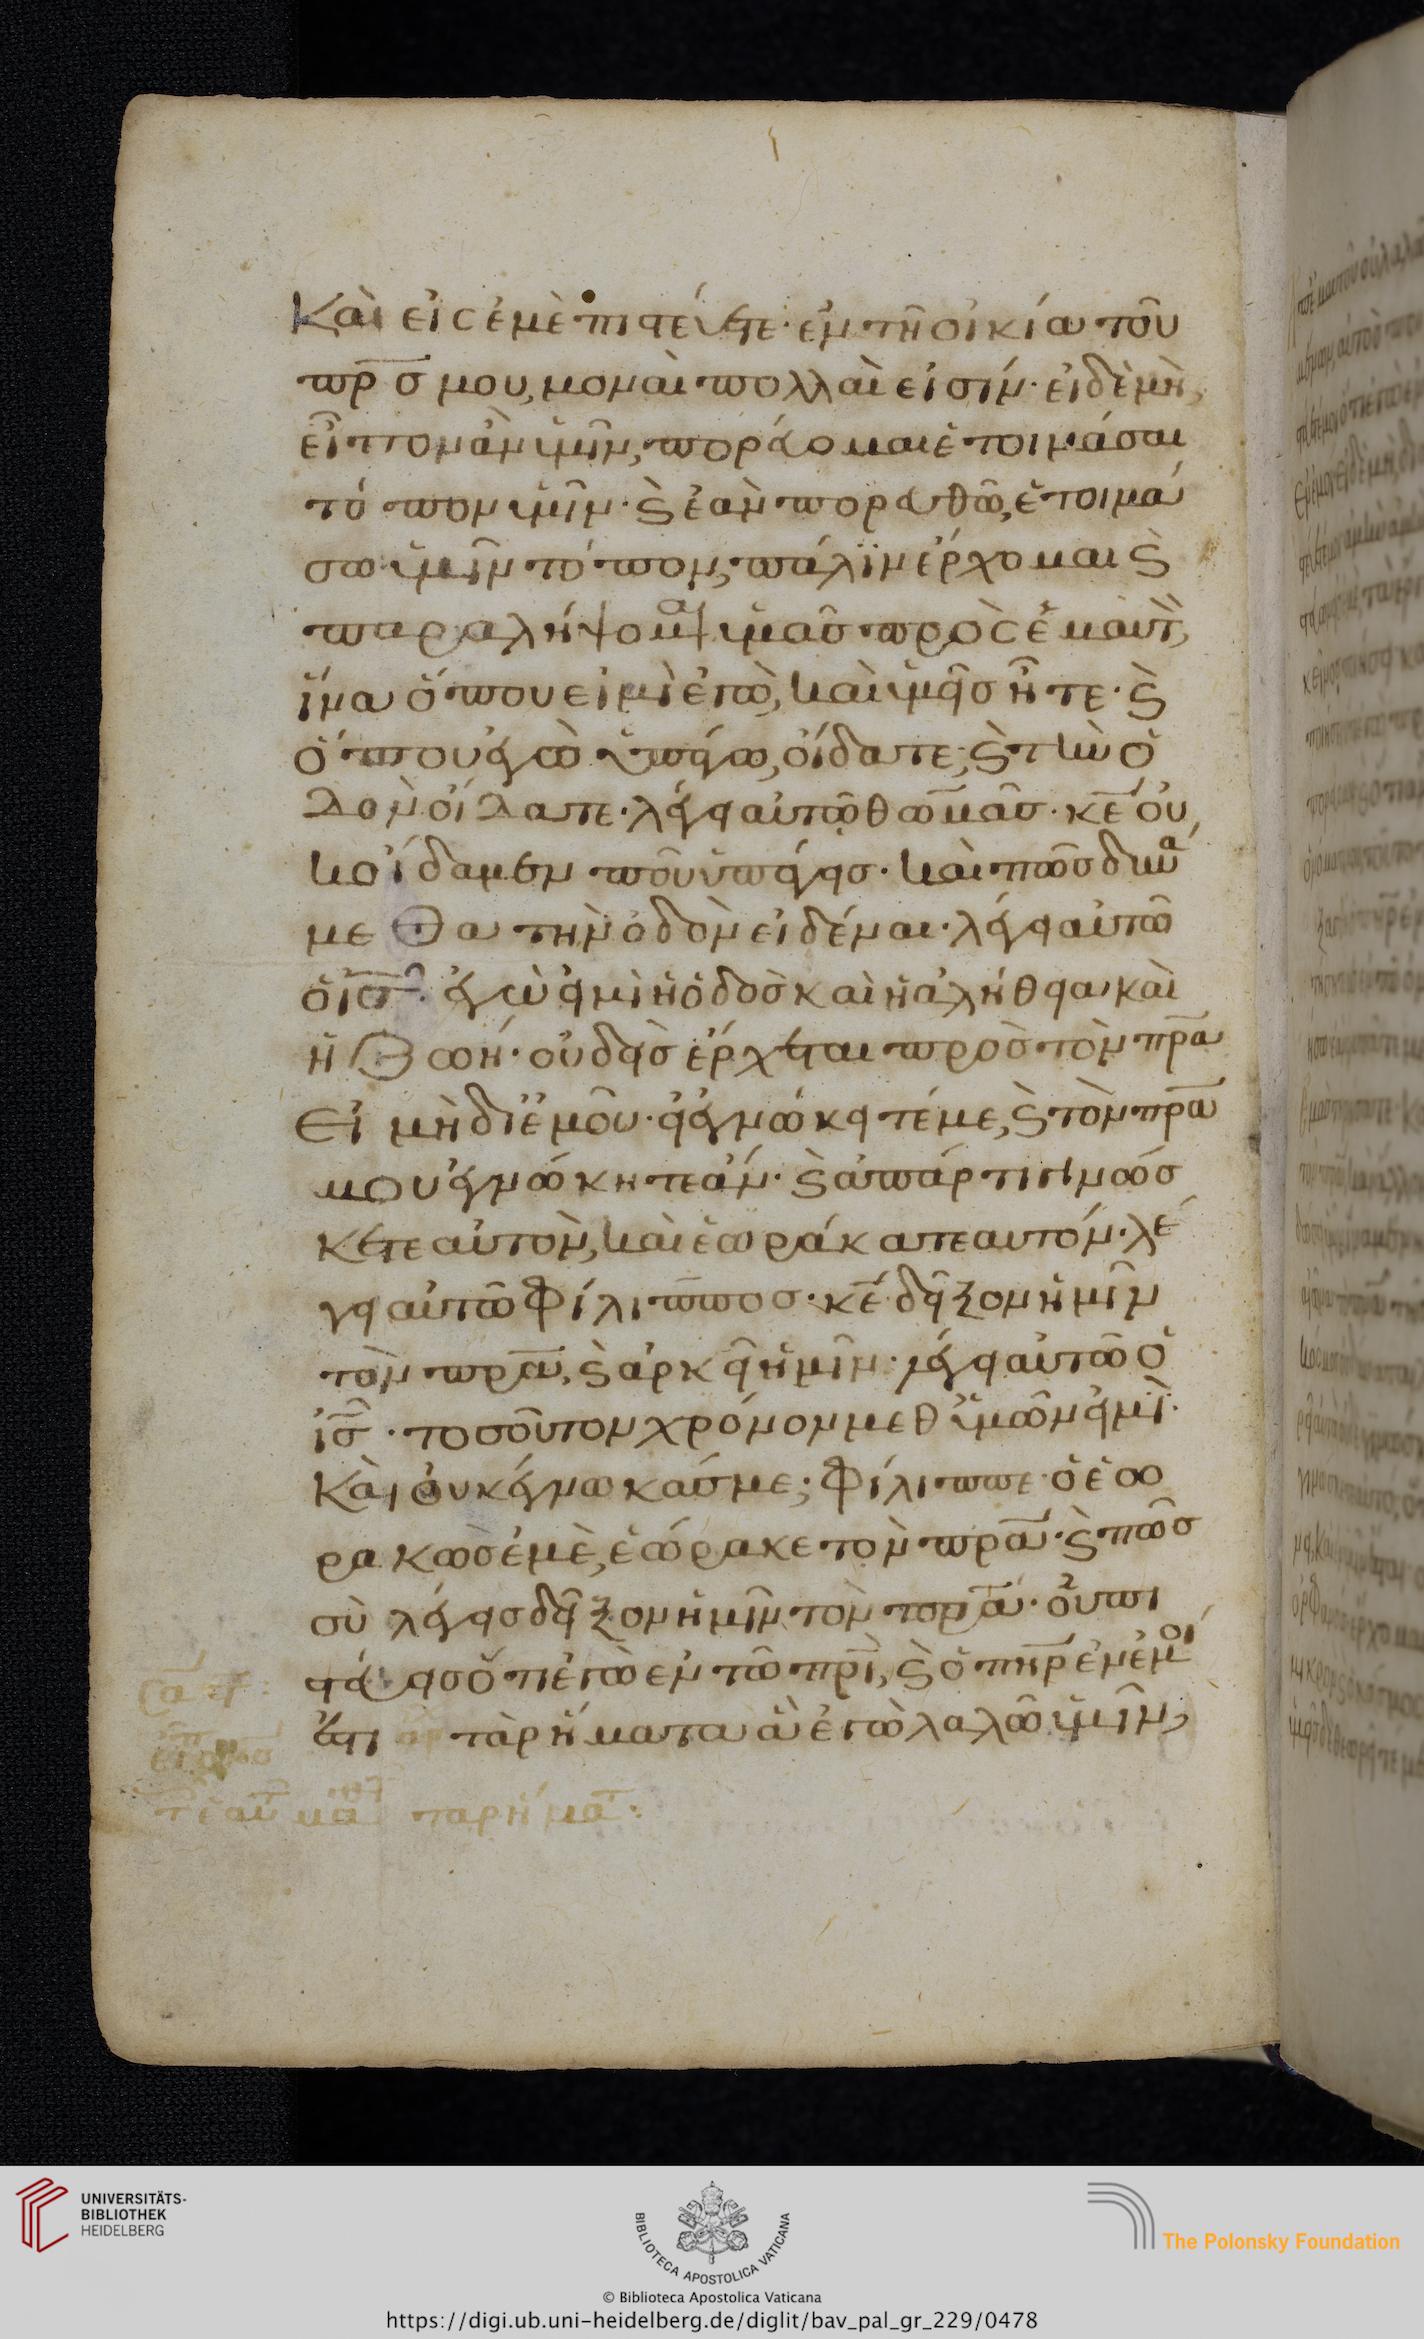 Καὶ εἰς ἐμὲ πιστεύετε· ἐν τῆ οἰκία τοῦ
πρ̅σ μου, μοναὶ πολλαὶ εἰσίν· εἰ δὲ μὴ,
εἶπον ἂν ὑμῖν, πορεύομαι ἑτοιμάσαι
τόπον ὑμῖν· ϗ ἐὰν πορευθῶ, ἑτοιμά
σω ὑμῖν τόπον, πάλϊν ἔρχομαι ϗ
παραλήψομαι ὑμᾶσ πρὸς ἐμαυτ,
ἵνα ὅπου εἰμὶ ἐγὼ, καὶ ὑμεῖσ ἦτε· ϗ
ὅπου ἐγὼ ὑπάγω, οἴδατε, ϗ τὴν ὁ
δὸν οἴδατε· λέγει αὐτῶ θωμᾶσ· κε̅ οὐ
κ οἴδαμεν ποῦ ὑπάγεισ· καὶ πῶσ δυνά
μεθα τὴν ὁδὸν εἰδέναι· λέγει αὐτῶ
ὁ ισ̅· ἐγώ εἰμὶ ἡ ὁδὸσ καὶ ἡ ἀλήθεια καὶ
ἡ ζωή· οὐδεὶσ ἔρχεται πρὸσ τὸν πρ̅α
Εἰ μὴ δι ἐμοῦ· εἰ ἐγνώκειτέ με, ϗ τὸν πρ̅α
μου ἐγνώκητε ἄν· ϗ ἀπάρτι γινώσ
κετε αὐτὸν, καὶ ἑωράκατε αυτόν· λέ
γει αὐτῶ Φίλιππος· κε̅ δεῖξον ἡμῖν
τὸν πρ̅α, ϗ ἀρκεῖ ἡμῖν· λέγει αὐτῶ ὁ
ἰσ̅· τοσοῦτον χρόνον μεθ ὑμῶν εἰμὶ·
Καὶ οὐκ ἔγνωκάσ με; Φίλιππε· ὁ ἑω
ρακὼσ ἐμὲ, ἑώρακε τὸν πρ̅α· ϗ πῶσ
σὺ λέγεισ δεῖξον ἡμῖν τὸν πρ̅α· οὐ πι
στεύεισ ὅτι ἐγὼ ἐν τῶ πρι̅, ϗ ὁ πηρ̅ ἐν ἐμοί
ἐστι τὰ ρήματα ἃ ἐγὼ λαλῶ ὑμῖν,
τα ρήμα:
UNIVERSITÄTS-
BIBLIOTHEK
HEIDELBERG
BIBLIOTECA APOSTOLICA VATICANA
The Polonsky Foundation
© Biblioteca Apostolica Vaticana
https://digi.ub.uni-heidelberg.de/diglit/bav_pal_gr_229/0478